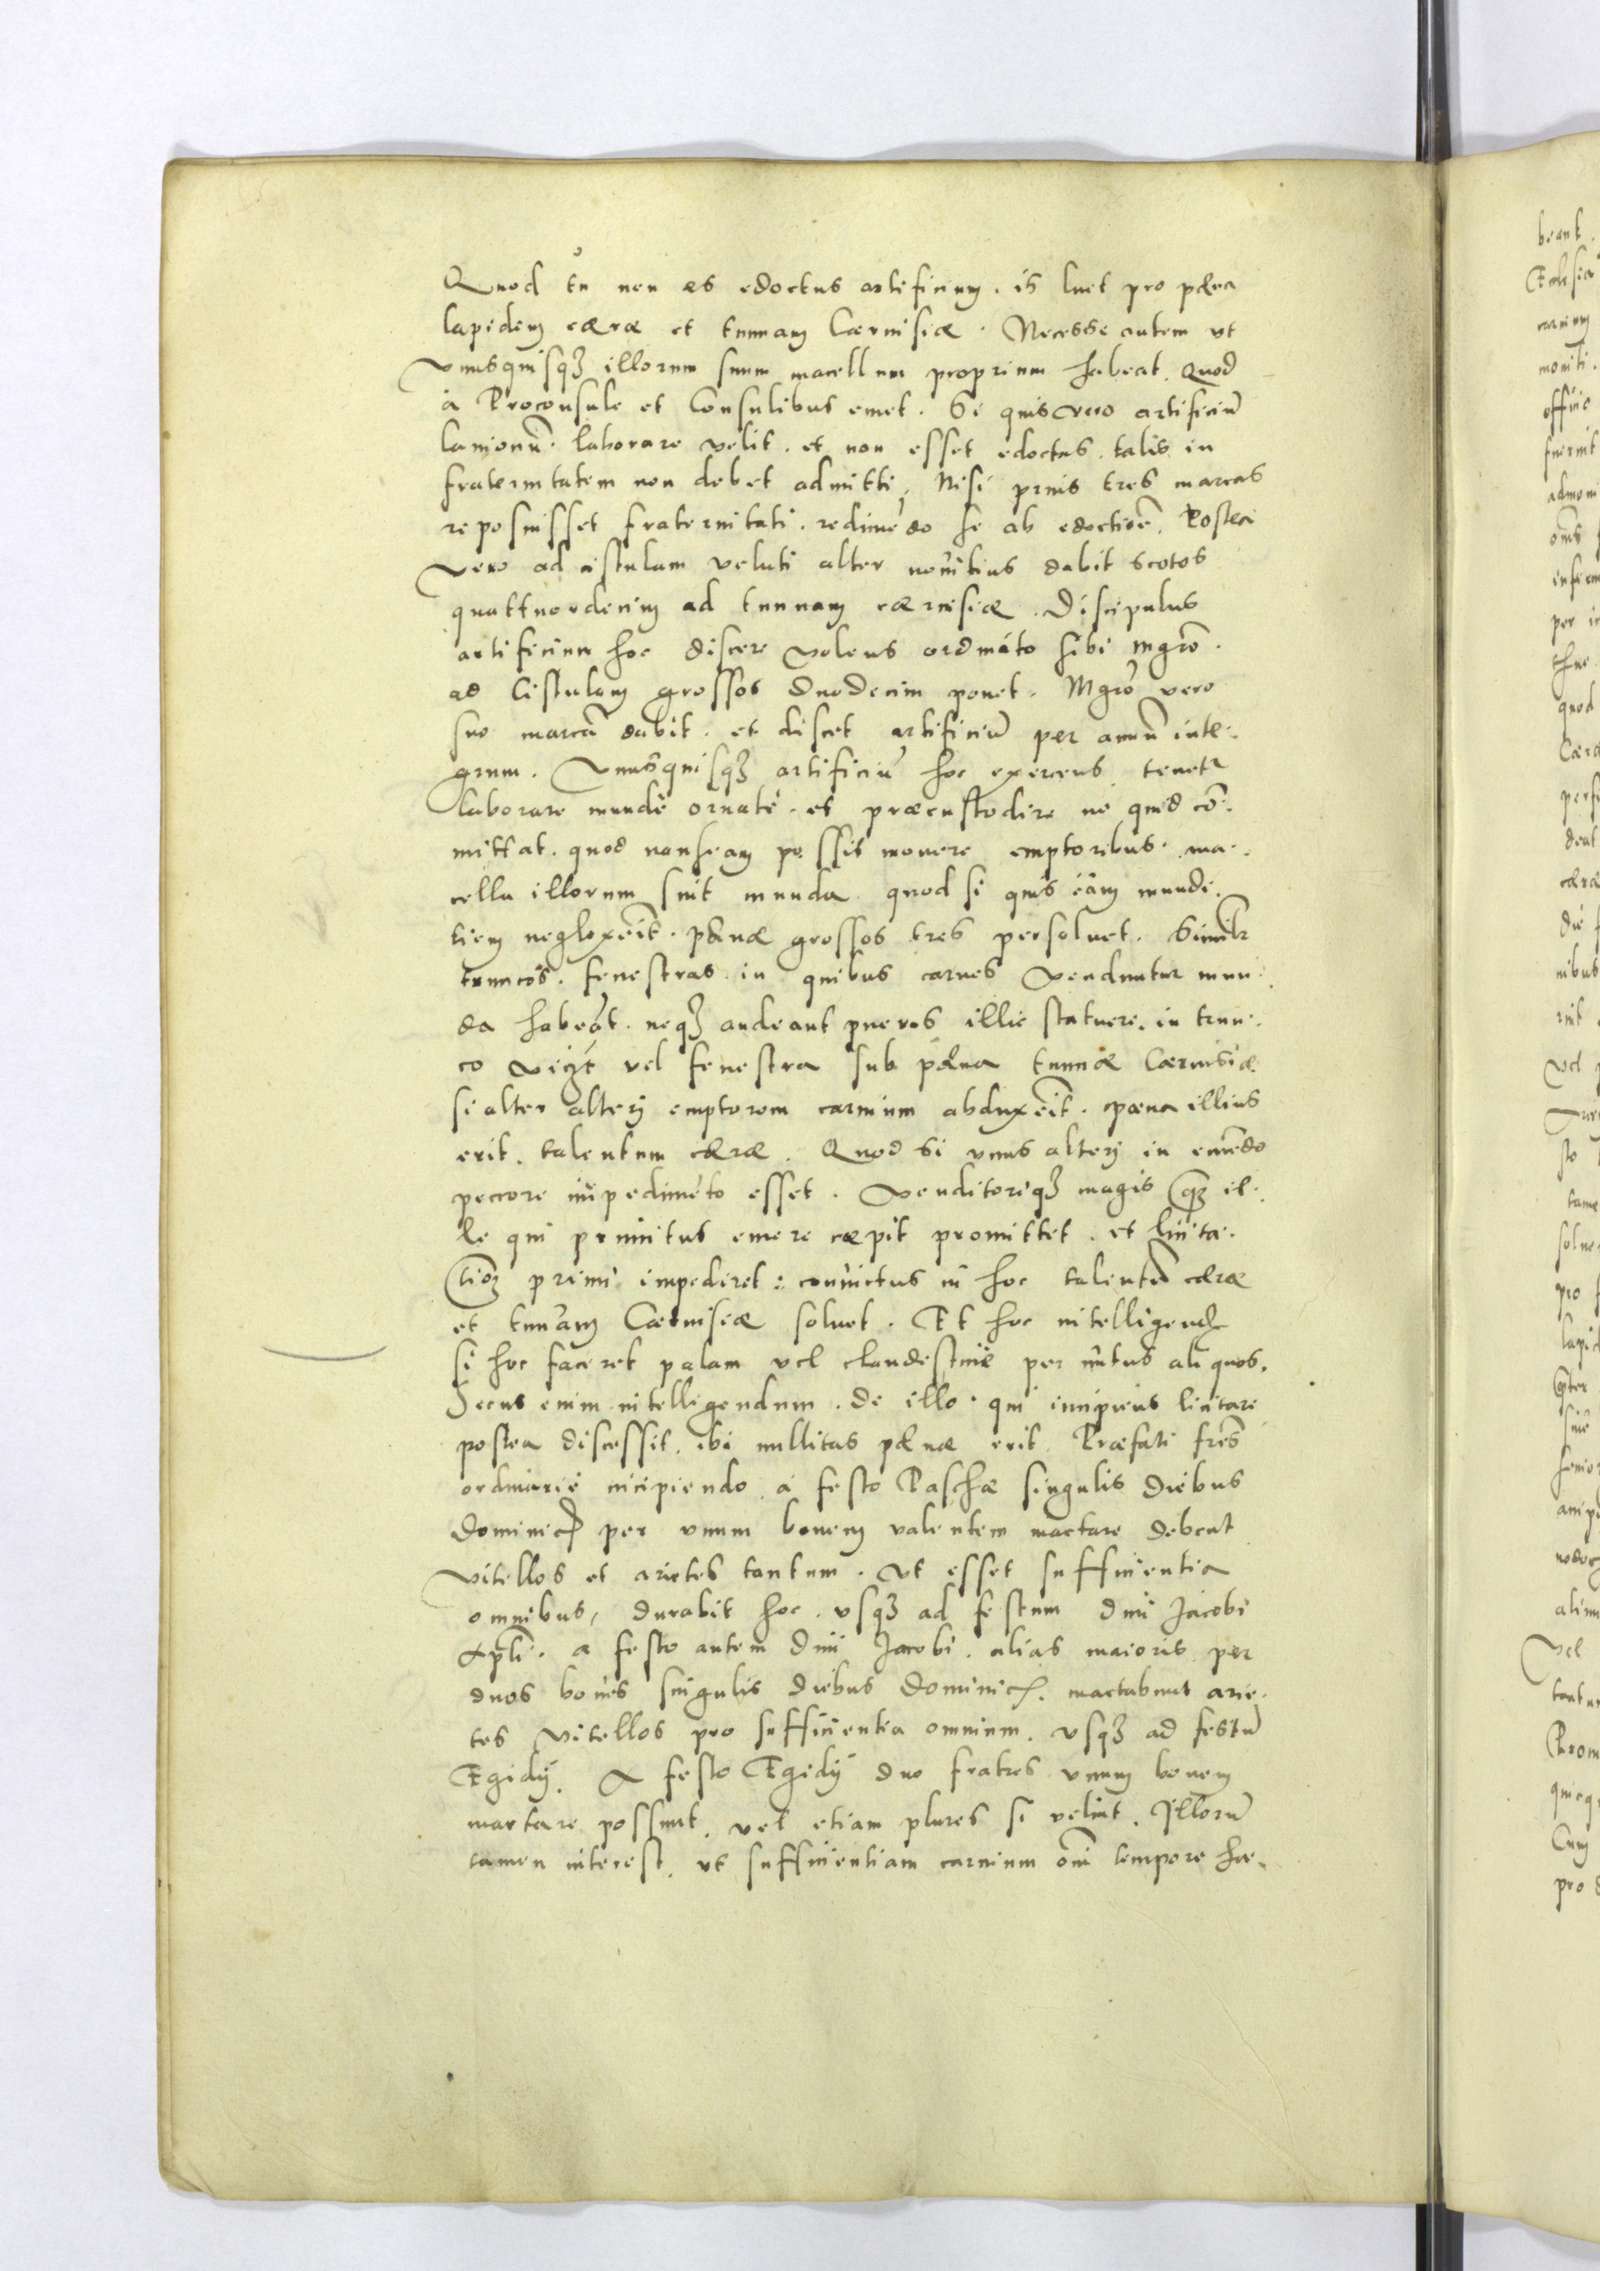 Quod tu non es edoctus artificium. is luet pro pæna
lapidem cæræ et tunnam Cærvisiæ. Necesse autem ut
Unusquisqȝ illorum suum macellum proprium habeat. Quod
à Proconsule et Consulibus emet. Si quis vero artificiũ
lanionũ laborare velit. et non esset edoctus. talis in
fraternitatem non debet admitti, Nisi prius tres marcas
reposuisset fraternitati. redimẽdo se ab edoctiõe. Postea
Vero ad cistulam veluti alter novitius dabit scotos
quattuordecim ad tunnam cærvisiæ. Discipulus
artificium hoc discere volens ordinato sibi mgr̃o.
ad Cistulam grossos duodecim ponet. Mgr̃o vero
suo marcã dabit. et discet artificiũ per annũ inte-
grum. Unusquisqȝ artificiũ hoc exercens tenetr
laborare munde ornate. et præcustodire ne quid cõ-
mittat. quod nauseam possit movere emptoribus. ma-
cella illorum sint munda quod si quis eam mundi-
tiem neglexerit. pænæ grossos tres persolvet. Similr
truncos. fenestras in quibus carnes Venduntur mun-
da habeãt. neqȝ audeant pueros illic statuere. in trun-
co vel fenestra sub pæna tunnæ Cærvisiæ.
si alter alterĳ emptorem carnium abduxerit. pæna illius
erit. talentum cæræ. Quod si unus alterĳ in emẽdo
peccore impedimẽto esset. Venditoriqȝ magis qȝ il-
le qui primitus emere cæpit promittet. et licita-
tioȝ primi impediret: convictus in hoc talentũ cæræ
et tunnam Cærvisiæ solvet. Et hoc intelligend
si hoc faceret palam vel clandestine per nutus aliquos.
Secus enim intelligendum. de illo. qui incipiens licitare
postea discessit. ibi nullitas pænæ erit. Præfati fr̃es
ordinarie incipiendo à festo Paschæ singulis diebus
Dominic per unum bovem valentem mactare debent
Vitellos et arietes tantum. Ut esset sufficientia
omnibus, durabit hoc. usqȝ ad festum dni Jacobi
Apli. a festo autem dni Jacobi. alias maioris per
duos boves singulis diebus Dominic. mactabunt arie-
tes Vitellos pro sufficientia omnium. usqȝ ad festũ
Egidĳ. A festo Egidĳ duo fratres unum bovem
mactare possunt. vel etiam plures si velint. Illorũ
tamen interest. ut sufficientiam carnium om̃i tempore ha-